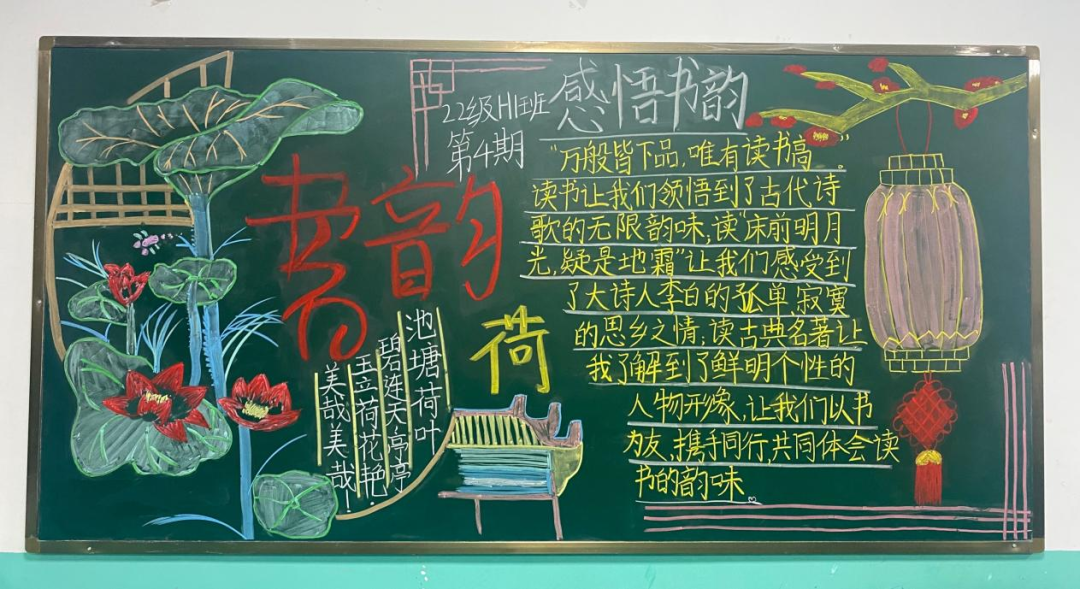 22级H1班
第4期
感悟书韵
書韵
荷
池塘荷叶
碧连天,亭亭
玉立荷花艳
美哉美哉!
“万般皆下品,唯有读书高”。
读书让我们领悟到了古代诗
歌的无限韵味;读“床前明月
光,疑是地霜”让我们感受到
了大诗人李白的孤单、寂寞
的思乡之情;读古典名著让
我了解到了鲜明个性的
人物形像、让我们以书
为友,携手同行,共同体会读
书的韵味